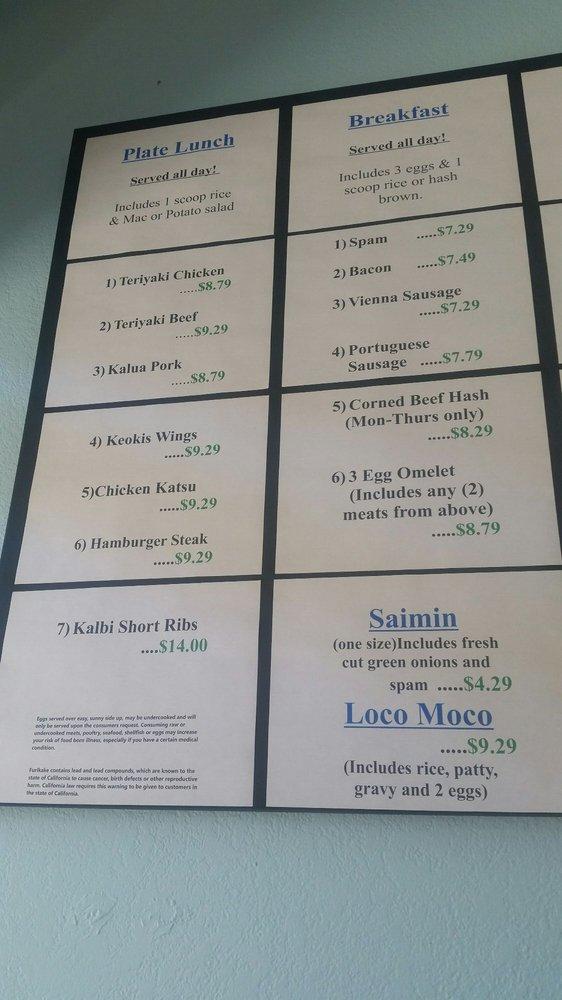 Plate Lunch
Served all day!
Includes 1 scoop rice
& Mac or Potato salad
1) Teriyaki Chicken
.....$8.79
2) Teriyaki Beef
.....$9.29
3) Kalua Pork
.....$8.79
4) Keokis Wings
.....$9.29
5)Chicken Katsu
.....$9.29
6) Hamburger Steak
.....$9.29
7) Kalbi Short Ribs
....$14.00
Eggs served over easy, sunny side up, may be undercooked and will
only be served upon the consumers request. Consuming raw or
undercooked meats, poultry, seafood, shellfish or eggs may increase
your risk of food born illness, especially if you have a certain medical
condition.
Furikake contains lead and lead compounds, which are known to the
state of California to cause cancer, birth defects or other reproductive
harm. California law requires this warning to be given to customers in
the state of California.
Breakfast
Served all day!
Includes 3 eggs & 1
scoop rice or hash
brown.
1) Spam .....$7.29
2) Bacon .....$7.49
3) Vienna Sausage
.....$7.29
4) Portuguese
Sausage .....$7.79
5) Corned Beef Hash
(Mon-Thurs only)
.....$8.29
6) 3 Egg Omelet
(Includes any (2)
meats from above)
.....$8.79
Saimin
(one size)Includes fresh
cut green onions and
spam .....$4.29
Loco Moco
.....$9.29
(Includes rice, patty,
gravy and 2 eggs)